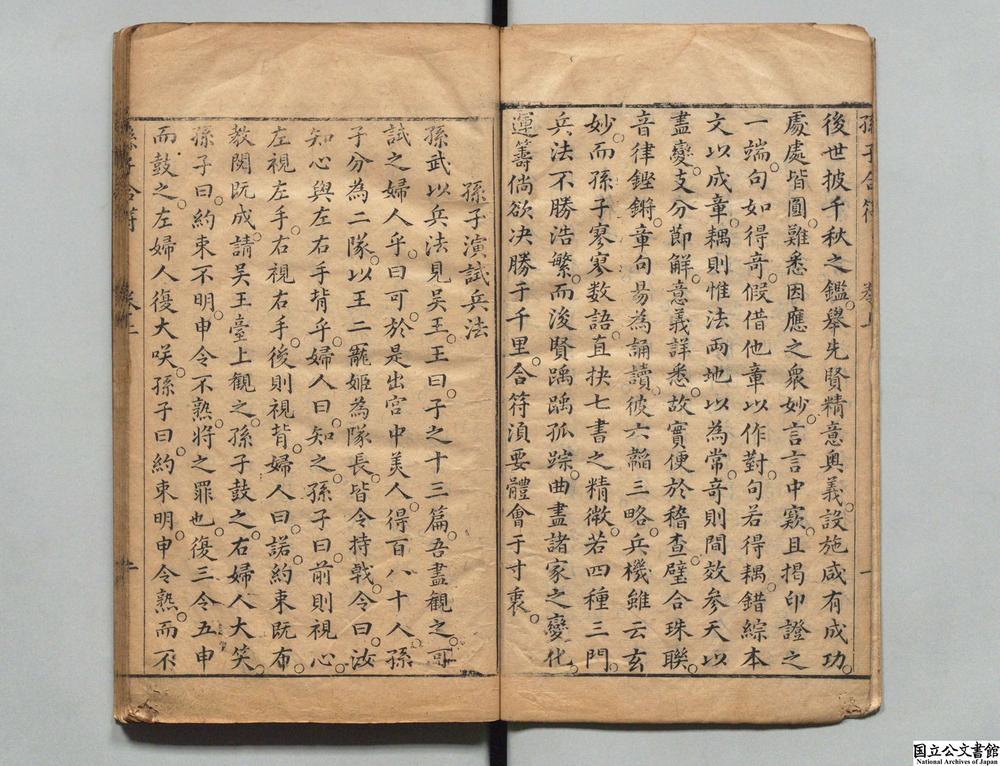 孫子合符 卷上 一
後世披千秋之鑑。舉先賢精意奧義。設施咸有成功。
處處皆圓。難悉因應之衆妙。言言中窾。且揭印證之
一端。句如得奇。假借他章以作對。句若得耦。錯綜本
文以成章。耦則惟法兩地以為常。奇則間效參天以
盡變。支分節解。意義詳悉。故實便於稽查。璧合珠聯。
音律鏗鏘。章句易為誦讀。彼六韜三略。兵機雖云玄
妙。而孫子寥寥數語。直抉七書之精微。若四種三門。
兵法不勝浩繁。而後賢踽踽孤踪。曲盡諸家之變化。
運籌倘欲決勝于千里。合符須要體會于寸衷。
孫子演試兵法
孫武以兵法見吳王。王曰。子之十三篇。吾盡觀之。可
試之婦人乎。曰可。於是出宮中美人。得百八十人。孫
子分為二隊。以王二寵姬為隊長。皆令持戟。令曰。汝
知心與左右手背乎。婦人曰。知之。孫子曰。前則視心。
左視左手。右視右手。後則視背。婦人曰。諾。約束既布。
教閱既成。請吳王臺上觀之。孫子鼓之。右婦人大笑。
孫子曰。約束不明。申令不熟。將之罪也。復三令五申
而鼓之。左婦人復大笑。孫子曰。約束明。申令熟。而不
孫子合符 卷上
国立公文書館
National Archives of Japan